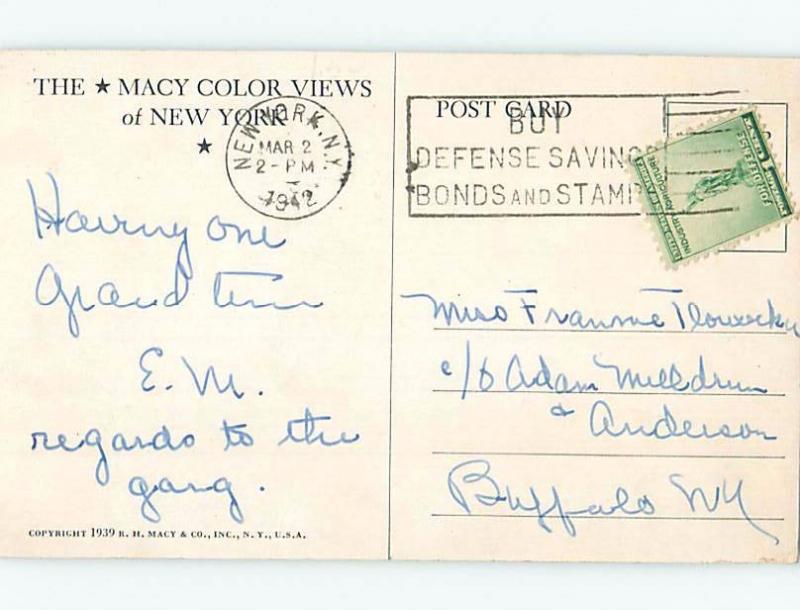 THE ★ MACY COLOR VIEWS
of NEW YORK
★
NEW YORK, N.Y.
MAR 2
2-PM
1942
POST CARD
BUY
DEFENSE SAVING
BONDS AND STAMP
INDUSTRY AGRICULTURE
FOR DEFENSE
Having one
Grand time
E. M.
regards to the
gang.
Miss Frannie
c/o Adam Meldrum
& Anderson
Buffalo NY
COPYRIGHT 1939 R. H. MACY & CO., INC., N. Y., U.S.A.